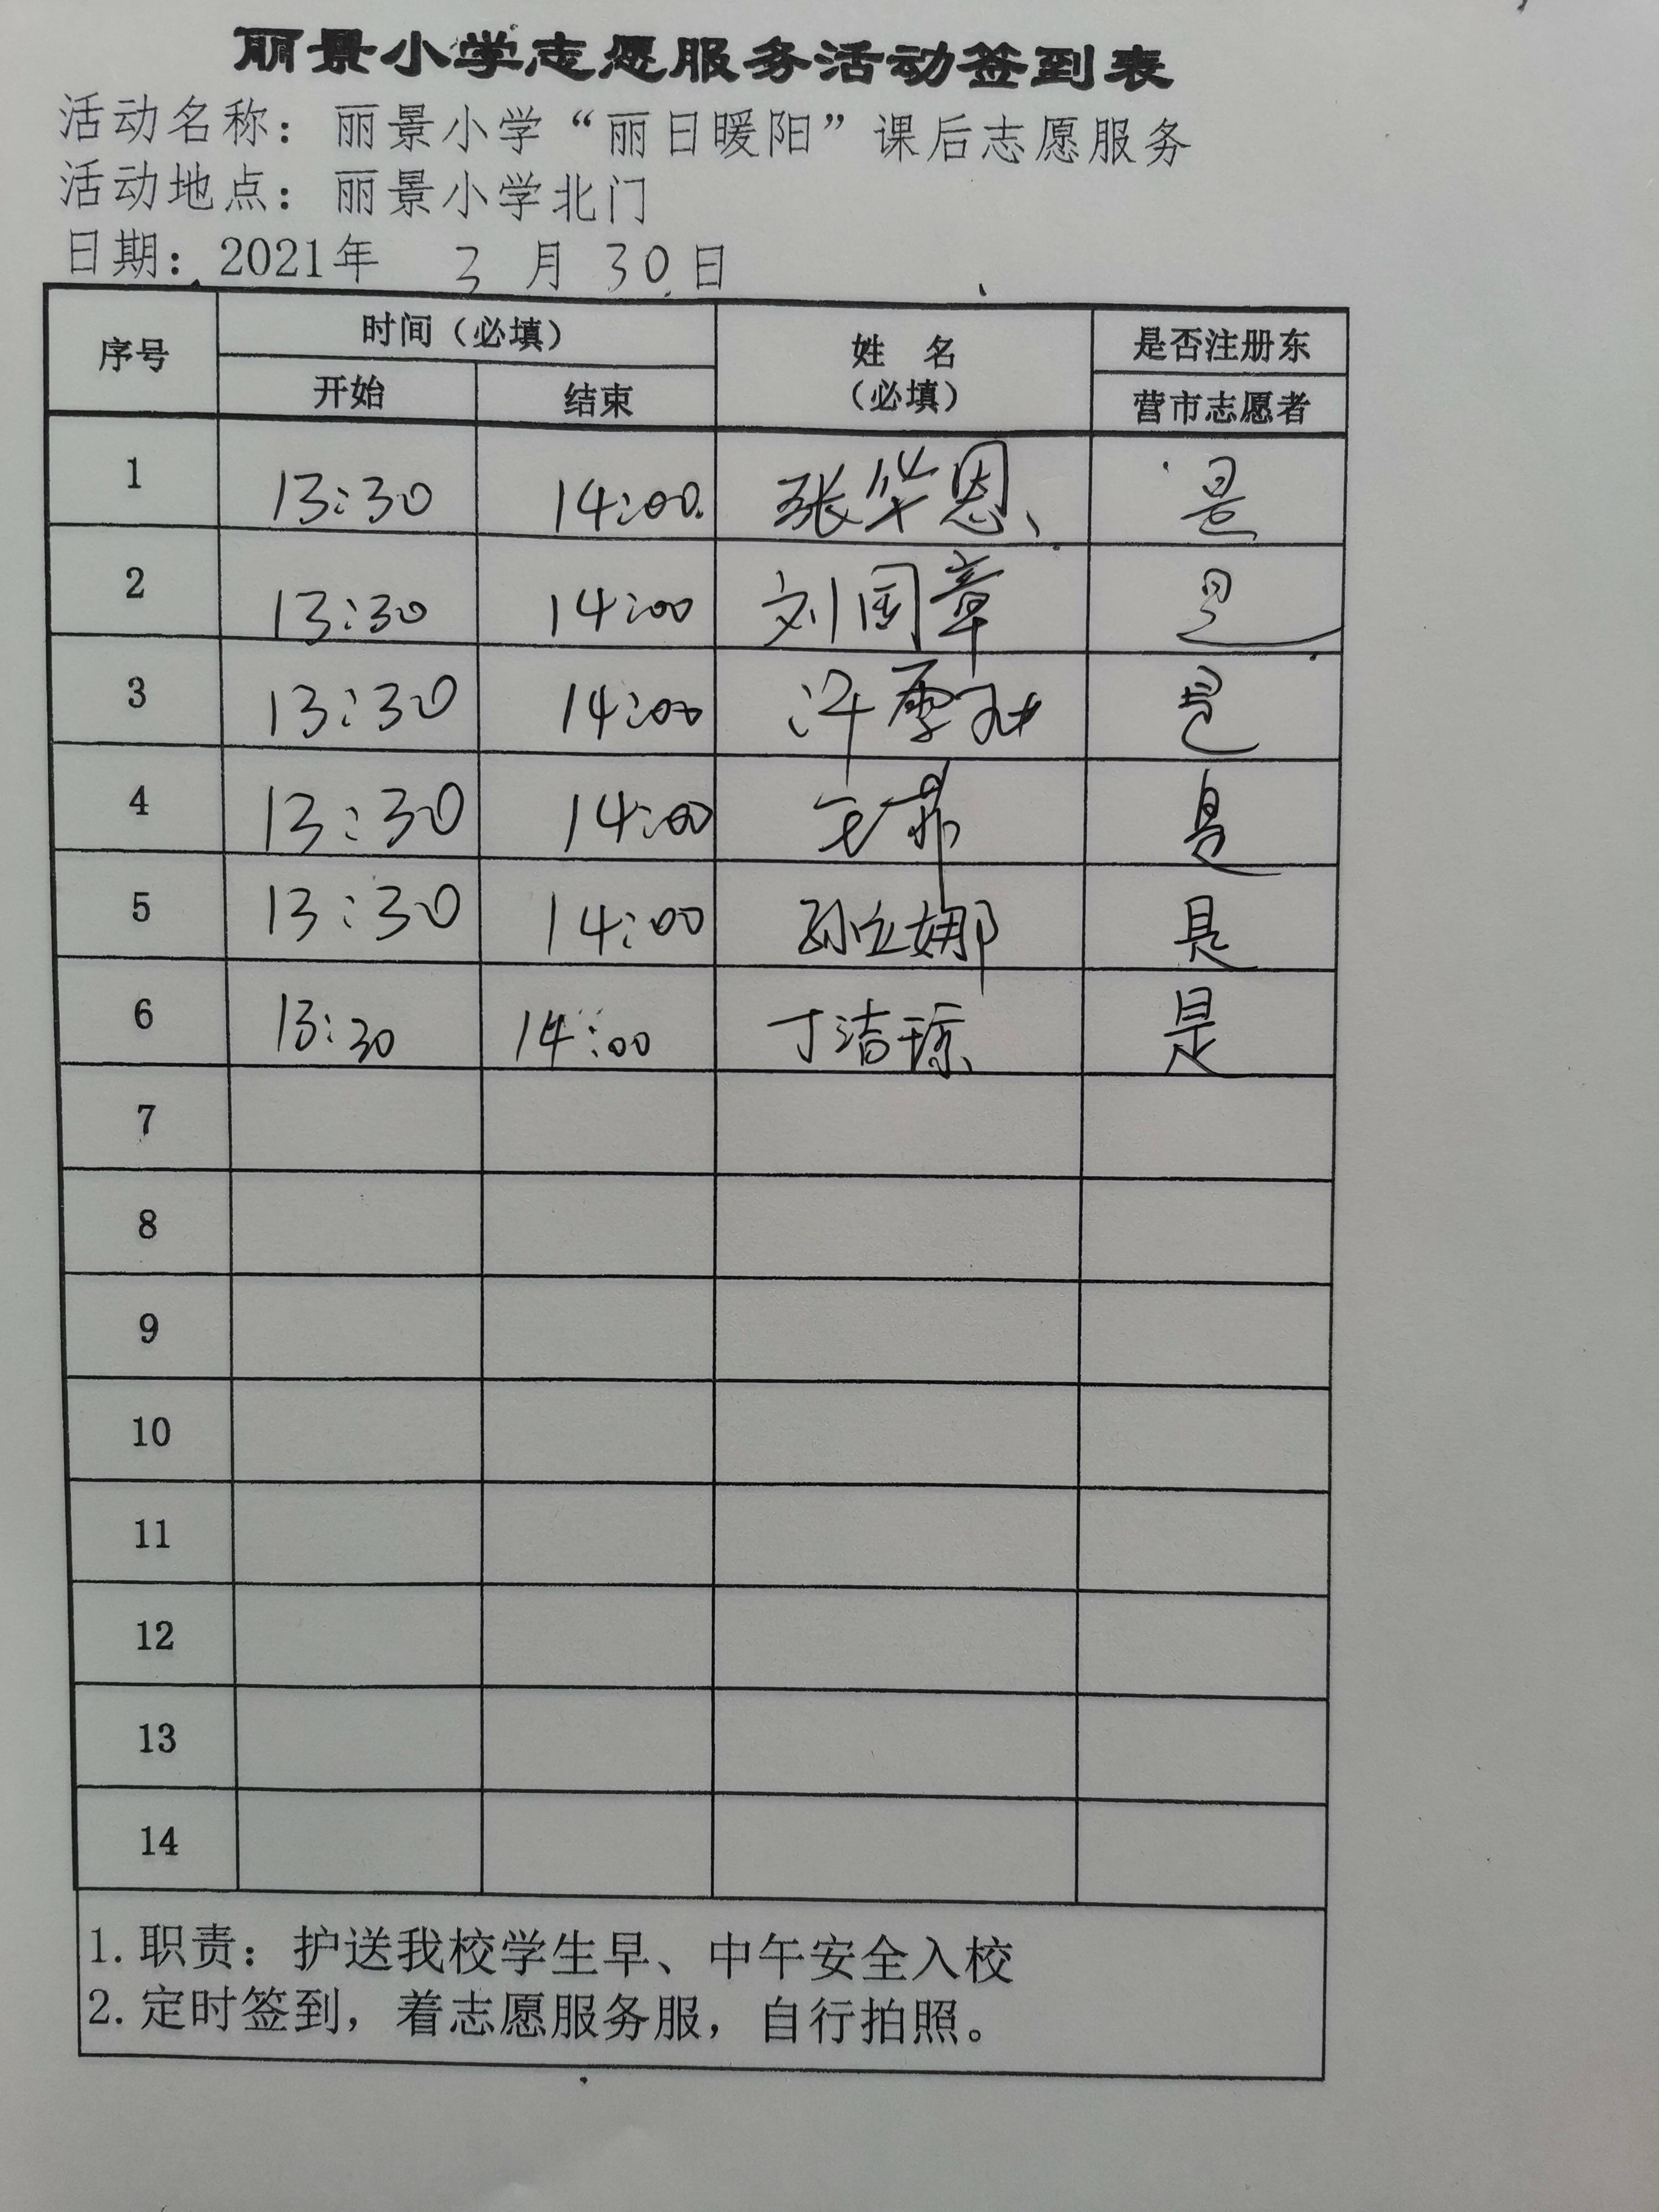 丽景小学志愿服务活动签到表
活动名称：丽景小学“丽日暖阳”课后志愿服务
活动地点：丽景小学北门
日期：2021年 3 月 30 日
序号 时间（必填） 姓 名（必填） 是否注册东营市志愿者
开始 结束
1 13:30 14:00 张华恩 是
2 13:30 14:00 刘国章 是
3 13:30 14:00 是
4 13:30 14:00 是
5 13:30 14:00 孙立娜 是
6 13:30 14:00 丁洁琼 是
7
8
9
10
11
12
13
14
1. 职责：护送我校学生早、中午安全入校
2. 定时签到，着志愿服务服，自行拍照。